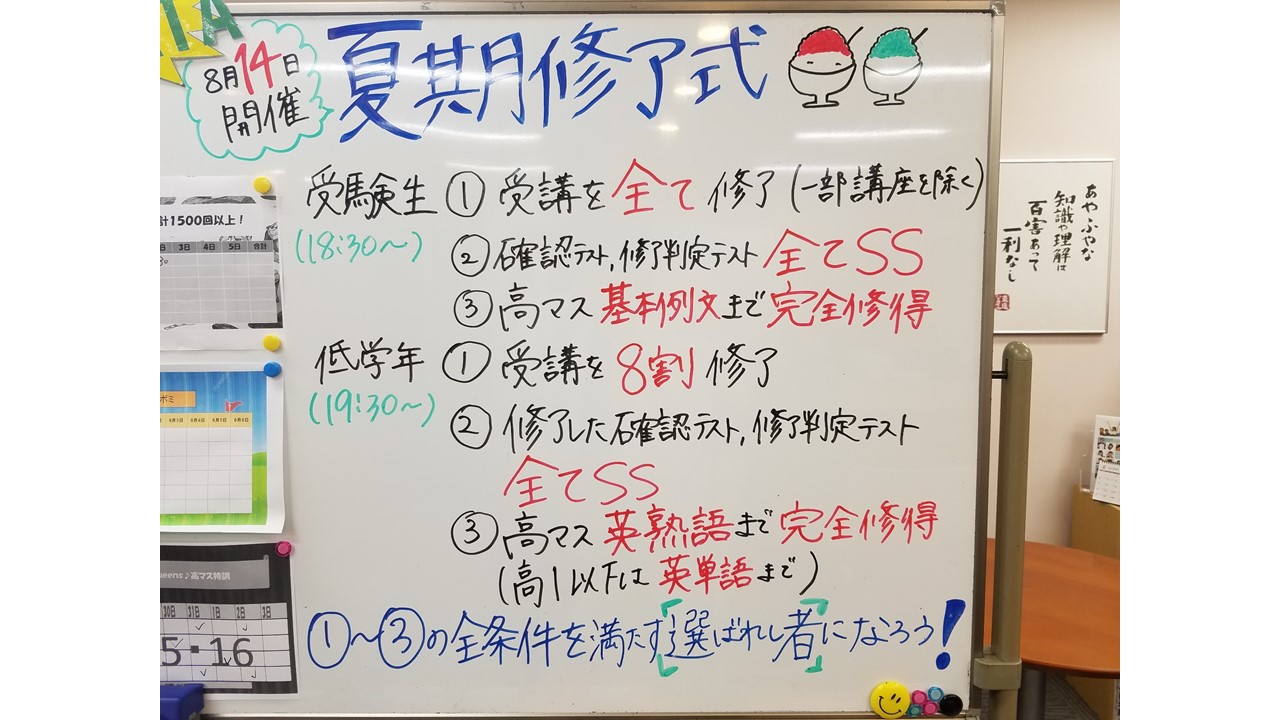 8月14日
開催
夏期修了式
受験生 ① 受講を全て修了(一部講座を除く)
(18:30〜)
② 確認テスト,修了判定テスト 全てSS
③ 高マス 基本例文まで完全修得
低学年 ① 受講を8割修了
(19:30〜)
② 修了した確認テスト,修了判定テスト
全てSS
③ 高マス 英熟語まで完全修得
(高1以下は英単語まで)
①〜③の全条件を満たす「選ばれし者」になろう!
計1500回以上!
3日 4日 5日 合計
ueens♪高マス特訓
30日 31日 1日 2日 3日
5・16
あやふやな
知識や理解は
百害あって
一利なし